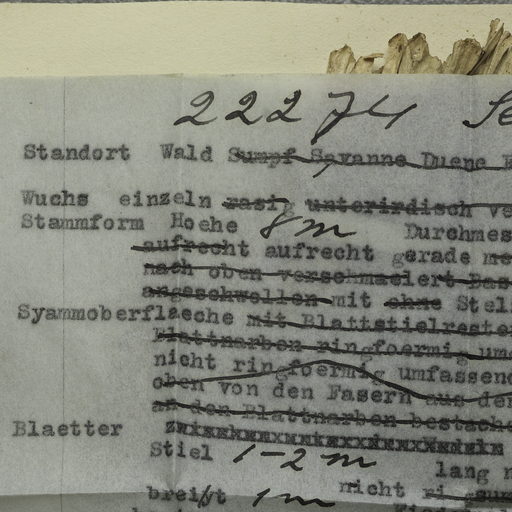 22274 Se
Standort Wald Sumpf Savanne Duene
Wuchs einzeln rasig unterirdisch ve
Stammform Hoehe 8 m Durchmes
aufrecht aufrecht gerade
nach oben verschmaelert Bas
angeschwollen mit ohne Stel
Syammoberflaeche mit Blattstielresten
Blattnarben ringfoermig um
nicht ringfoermig umfassend
oben von den Fasern aus de
an den Blattnarben bestache
Blaetter
Stiel 1-2 m lang
breit 1 m nicht